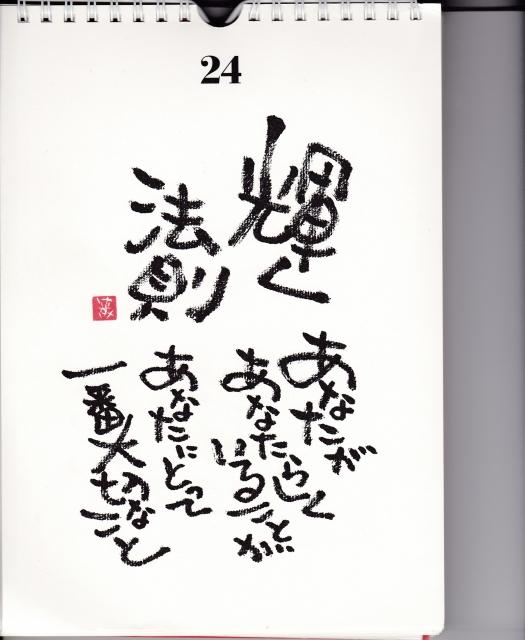 24
輝く
法則
あなたが
あなたらしく
いることが
あなたにとって
一番大切なこと